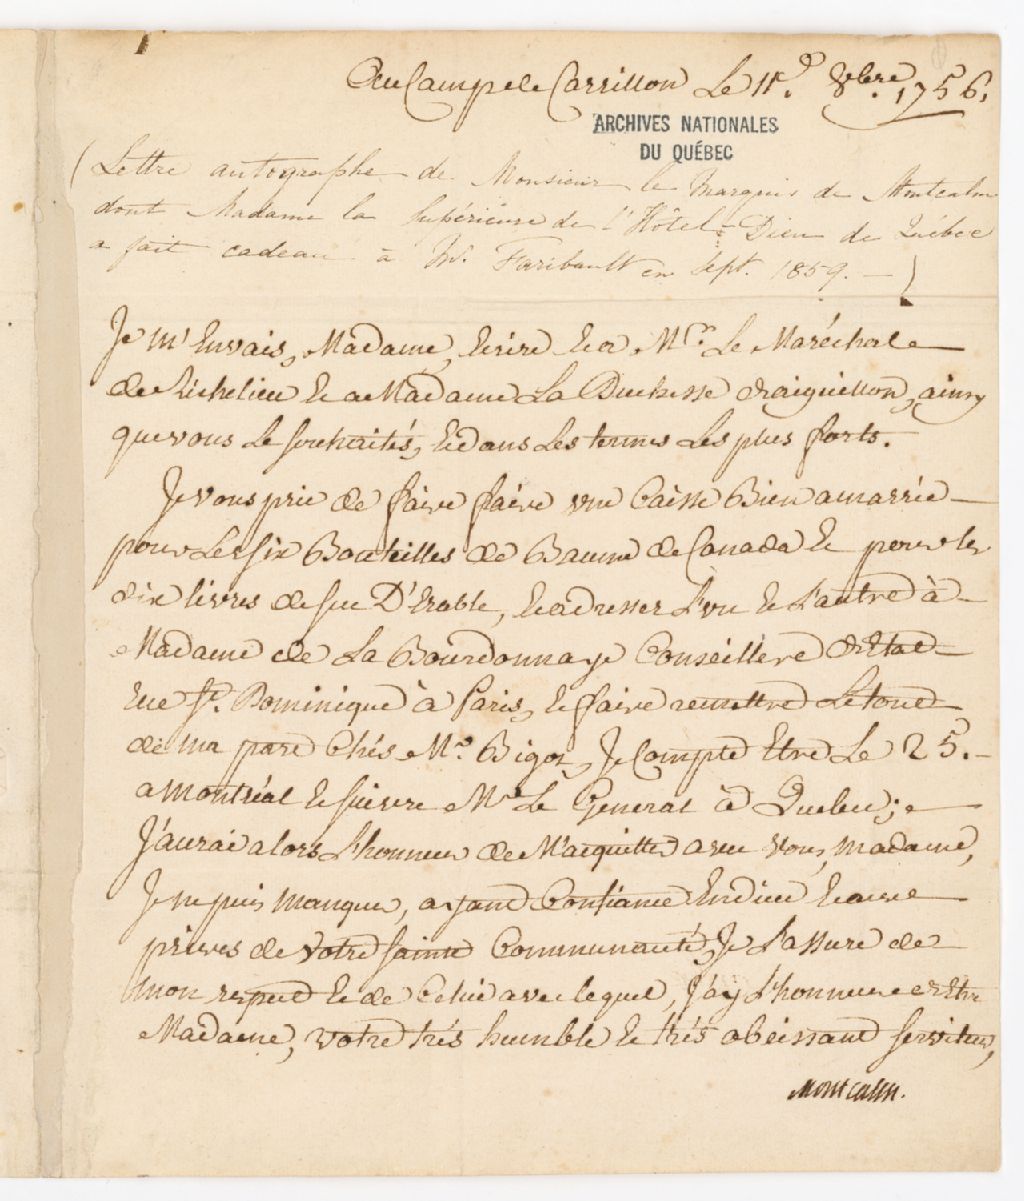 Au Camp de Carrillon Le 11e. 8bre. 1756.
ARCHIVES NATIONALES
DU QUÉBEC
(Lettre autographe de Monsieur le Marquis de Montcalm
dont Madame la Supérieure de l'Hôtel-Dieu de Québec
a fait cadeau à M. Faribault en Sept. 1859. —)
Je m'Envais, Madame, Ecrire Et a Mr. Le Maréchal
de Richelieu Et a Madame La Duchesse d'aiguillon, ainsy
que vous Le souhaités, Et dans Les termes Les plus forts.
Je vous prie de faire faire une Caisse Bien amarrée
pour Les six Bouteilles de Baume de Canada Et pour les
dix livres de suc D'Erable, Et adresser L'un Et L'autre à
Madame de La Bourdonnaye Conseillère d'Etat
rue St. Dominique à Paris, Et faire remettre Le tout
de ma part Chés Mr. Bigot, Je Compte Etre Le 25.
a Montréal Et suivre Mr. Le General à Quebec;
J'aurai alors L'honneur de M'acquitter avec vous, madame,
Je ne puis manquer, ayant Confiance En dieu Et aux
prieres de votre sainte Communauté, Je L'assure de
mon respect Et de Celui avec lequel, J'ay L'honneur d'Etre
Madame, votre trés humble Et trés obeissant serviteur,
Montcalm.